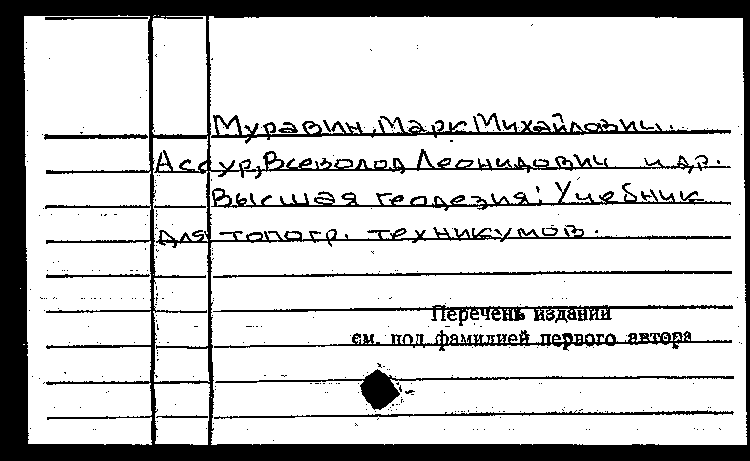 Муравин, Марк Михайлович.
Ассур, Всеволод Леонидович и др.
Высшая геодезия: Учебник
для топогр. техникумов.
Перечень изданий
см. под фамилией первого автора